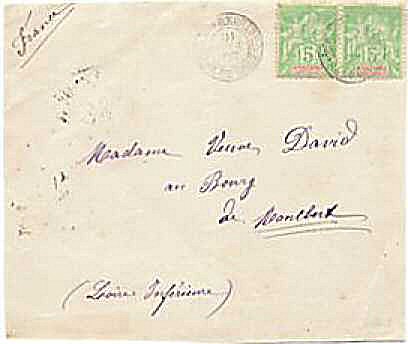 France
5 5
Madame Veuve David
au Bourg
de Montbert
(Loire Inférieure)